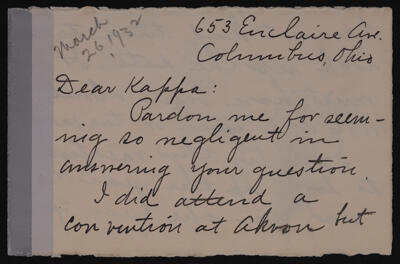 March
26 1932
653 Euclaire Ave.
Columbus, Ohio
Dear Kappa:
Pardon me for seem-
ing so negligent in
answering your question.
I did attend a
convention at Akron but